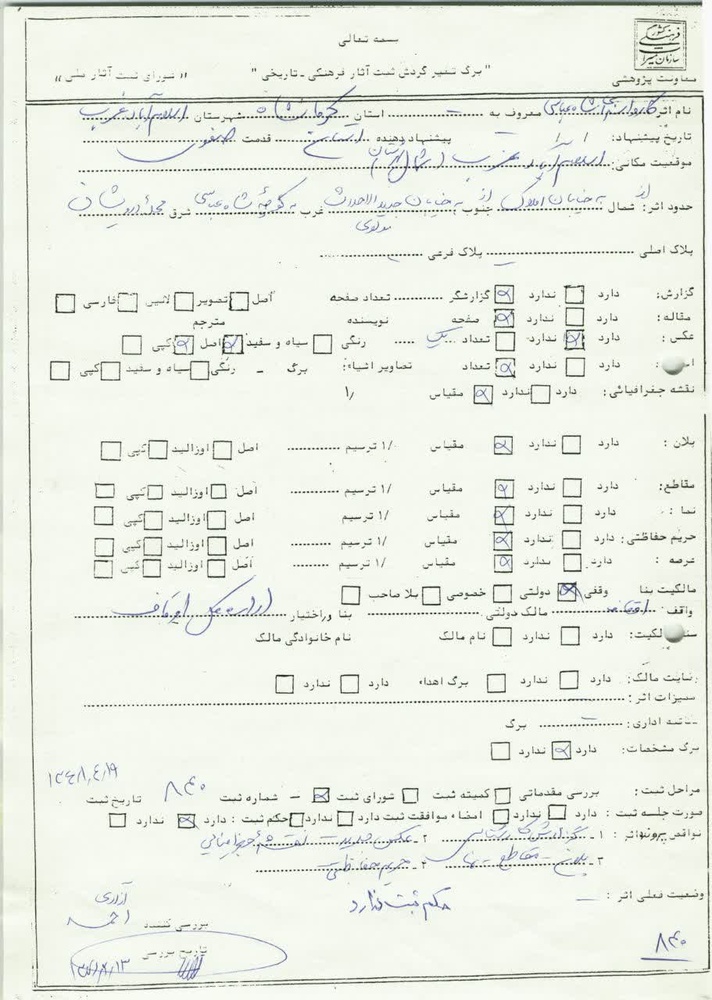 بسمه تعالی
" برگ تغییر گردش ثبت آثار فرهنگی ـ تاریخی " " شورای ثبت آثار ملی "
معاونت پژوهشی
نام اثر: کاروانسرای شاه عباسی معروف به ـ استان کرمانشاه شهرستان اسلام آباد غرب
تاریخ پیشنهاد: / / پیشنهاد دهنده استان قدمت صفوی
موقعیت مکانی: اسلام آباد غرب (شمال شهرستان)
حدود اثر: از شمال به خیابان املاک جنوب از به خیابان جدید الاحداث مولوی غرب به کوچه شاه عباسی شرق محله درویشان
پلاک اصلی پلاک فرعی
گزارش: دارد ندارد گزارشگر تعداد صفحه اصل تصویر لاتین فارسی
مقاله: دارد ندارد صفحه نویسنده مترجم
عکس: دارد ندارد تعداد یک رنگی سیاه و سفید اصل کپی
دارد ندارد تعداد تصاویر اشیاء: برگ ـ رنگی سیاه و سفید کپی
نقشه جغرافیائی: دارد ندارد مقیاس ۱/
پلان: دارد ندارد مقیاس ۱/ ترسیم اصل اوزالید کپی
مقاطع: دارد ندارد مقیاس ۱/ ترسیم اصل اوزالید کپی
نما: دارد ندارد مقیاس ۱/ ترسیم اصل اوزالید کپی
حریم حفاظتی: دارد ندارد مقیاس ۱/ ترسیم اصل اوزالید کپی
عرصه: دارد ندارد مقیاس ۱/ ترسیم اصل اوزالید کپی
مالکیت بنا وقفی دولتی خصوصی بلا صاحب
واقف مالک دولتی بنا در اختیار اداره کل اوقاف
سند مالکیت: دارد ندارد نام مالک نام خانوادگی مالک
رضایت مالک: دارد ندارد برگ اهداء دارد ندارد
ممیزات اثر:
اداری: ـ برگ
برگ مشخصات: دارد ندارد
۱۳۴۸/۴/۱۹
مراحل ثبت: بررسی مقدماتی کمیته ثبت شورای ثبت ـ شماره ثبت ۸۴۰ تاریخ ثبت
صورت جلسه ثبت: دارد ندارد امضاء موافقت ثبت دارد ندارد حکم ثبت: دارد ندارد
نواقص پرونده اثر: ۱ـ گزارش کارشناسی ۲ـ عکس جدید ـ نقشه جغرافیائی
۳ـ پلان ـ مقاطع ـ نما ۴ـ حریم حفاظتی
وضعیت فعلی اثر: ـ حکم ثبت ندارد
بررسی کننده
تاریخ بررسی
۸۴۰